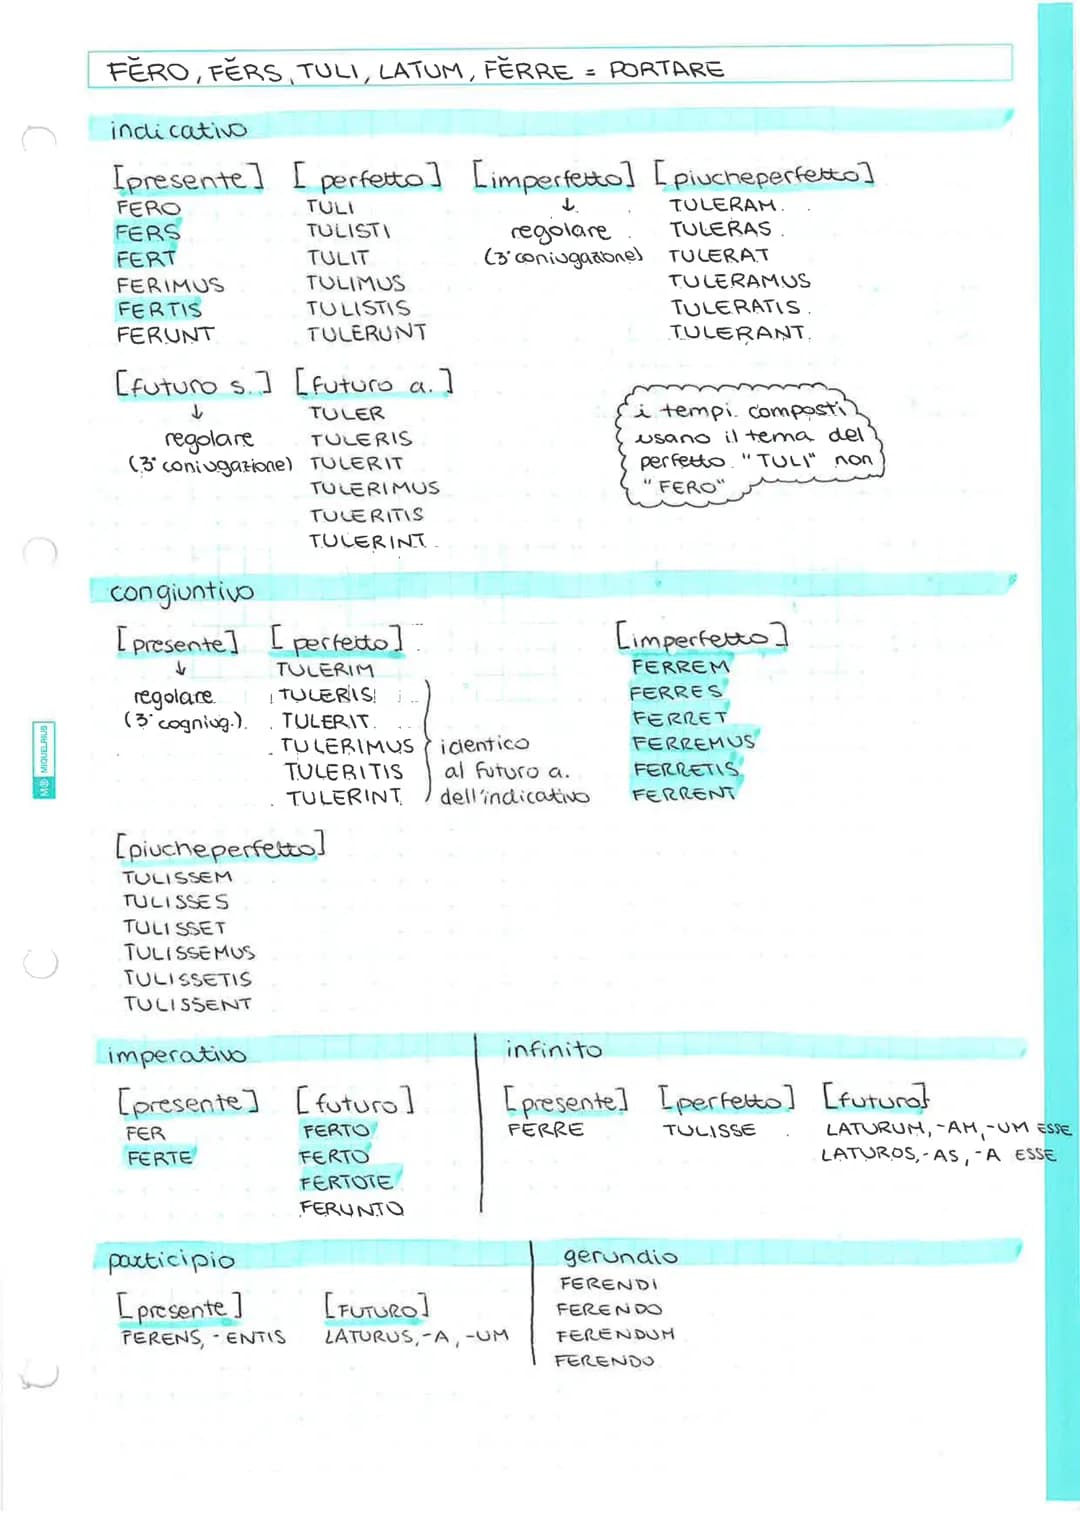 FĔRO, FĔRS, TULI, LATUM, FĔRRE = PORTARE
indicativo
[presente]
FERO
FERS
FERT
FERIMUS
FERTIS
FERUNT
[perfetto]
TULI
TULISTI
TULIT
TULIMUS
TULISTIS
TULERUNT
[imperfetto]
↓
regolare
(3° coniugazione)
[piucheperfetto]
TULERAM
TULERAS
TULERAT
TULERAMUS
TULERATIS
TULERANT
[futuro s.]
↓
regolare
(3° coniugazione)
[futuro a.]
TULER
TULERIS
TULERIT
TULERIMUS
TULERITIS
TULERINT
i tempi composti
usano il tema del
perfetto "TULI" non
"FERO"
congiuntivo
[presente]
↓
regolare
(3° cogniug.)
[perfetto]
TULERIM
TULERIS
TULERIT
TULERIMUS
TULERITIS
TULERINT
identico
al futuro a.
dell'indicativo
[imperfetto]
FERREM
FERRES
FERRET
FERREMUS
FERRETIS
FERRENT
[piucheperfetto]
TULISSEM
TULISSES
TULISSET
TULISSEMUS
TULISSETIS
TULISSENT
imperativo
[presente]
FER
FERTE
[futuro]
FERTO
FERTO
FERTOTE
FERUNTO
infinito
[presente]
FERRE
[perfetto]
TULISSE
[futuro]
LATURUM, -AM, -UM ESSE
LATUROS, -AS, -A ESSE
participio
[presente]
FERENS, -ENTIS
[FUTURO]
LATURUS, -A, -UM
gerundio
FERENDI
FERENDO
FERENDUM
FERENDO
MIQUELRIUS